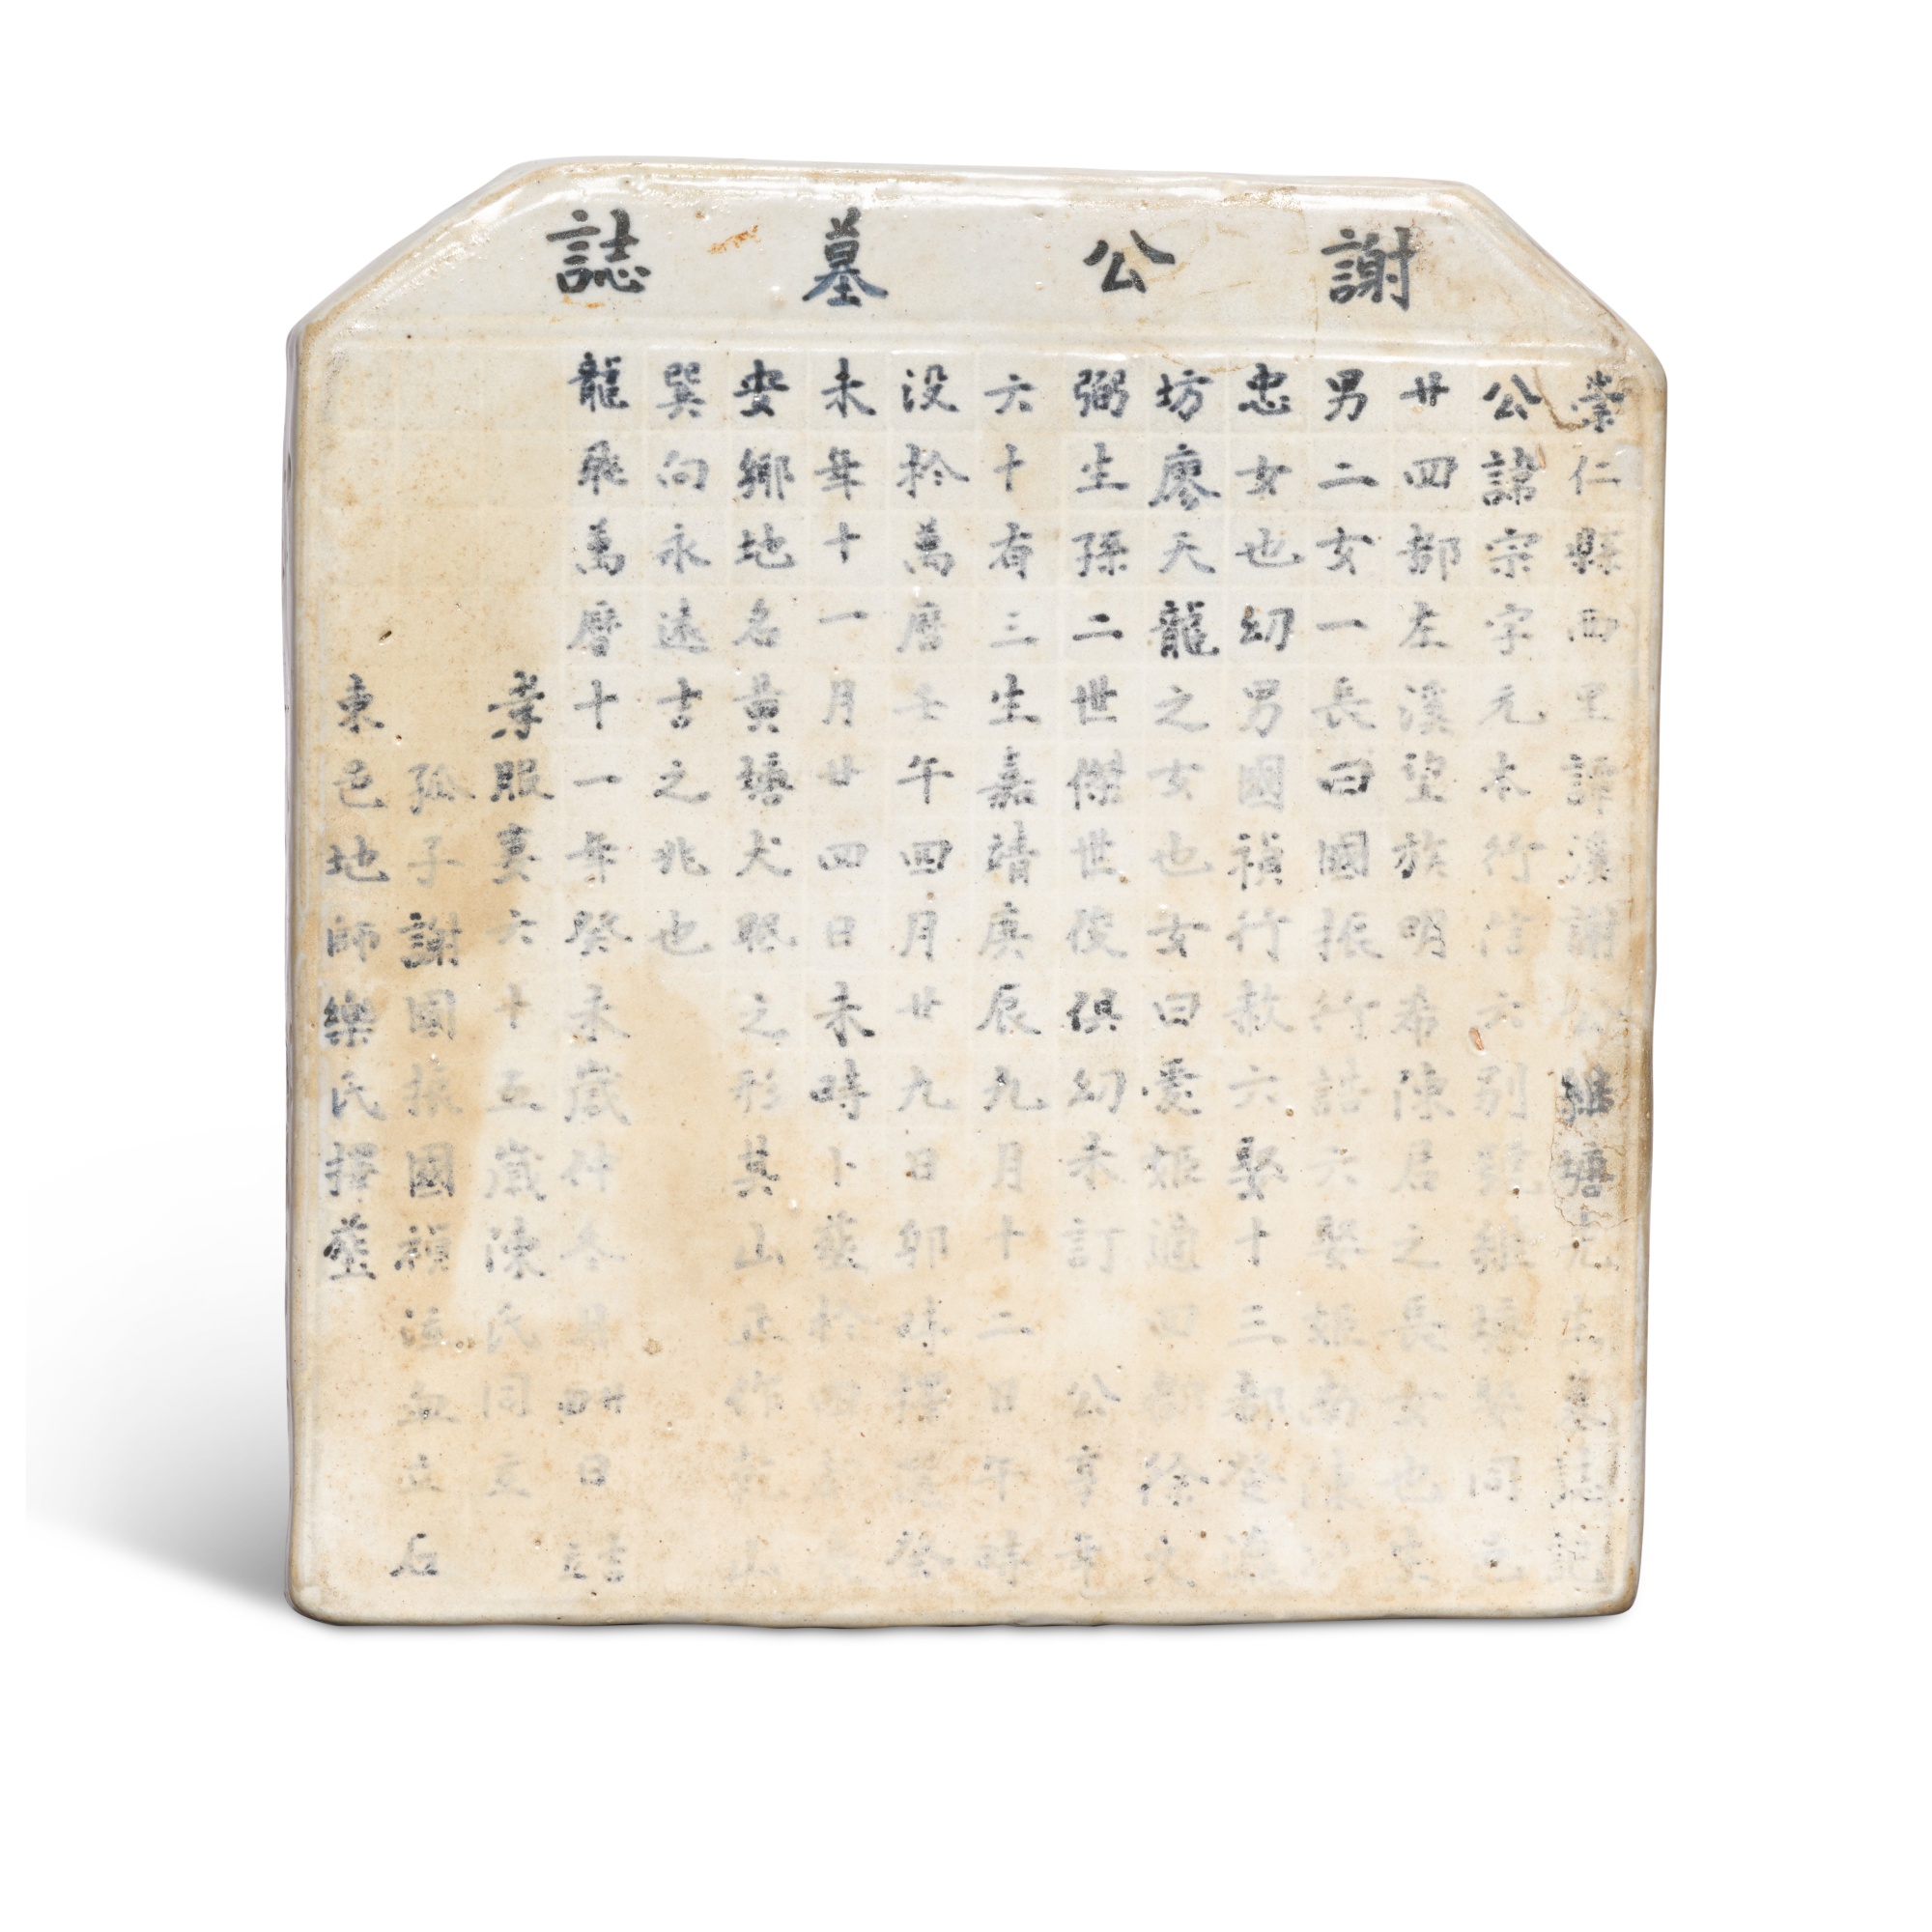 謝公墓誌
崇仁縣西里譚溪謝公維塘先生墓誌記
公諱宗字元本行信六別號維塘娶同邑
廿四都左溪望族明希陳居之長女也生
男二女一長曰國振行誥六娶姬南陳
忠女也幼男國禎行赦六娶十三都
坊廖天龍之女也女曰愛姬適四都徐文
弼生孫二世傑世俊俱幼未訂公享年
六十有三生嘉靖庚辰九月十二日午時
没於萬曆壬午四月廿九日卯時擇癸
未年十一月廿四日未時卜葬於
安鄉地名黃塘犬眠之形其山正作乾山
巽向永遠吉之兆也
龍飛萬曆十一年癸未歲仲冬月廿四日吉立
孝服妻六十五歲陳氏同立
孤子謝國振國禎泣血立石
東邑地師樂氏擇葬